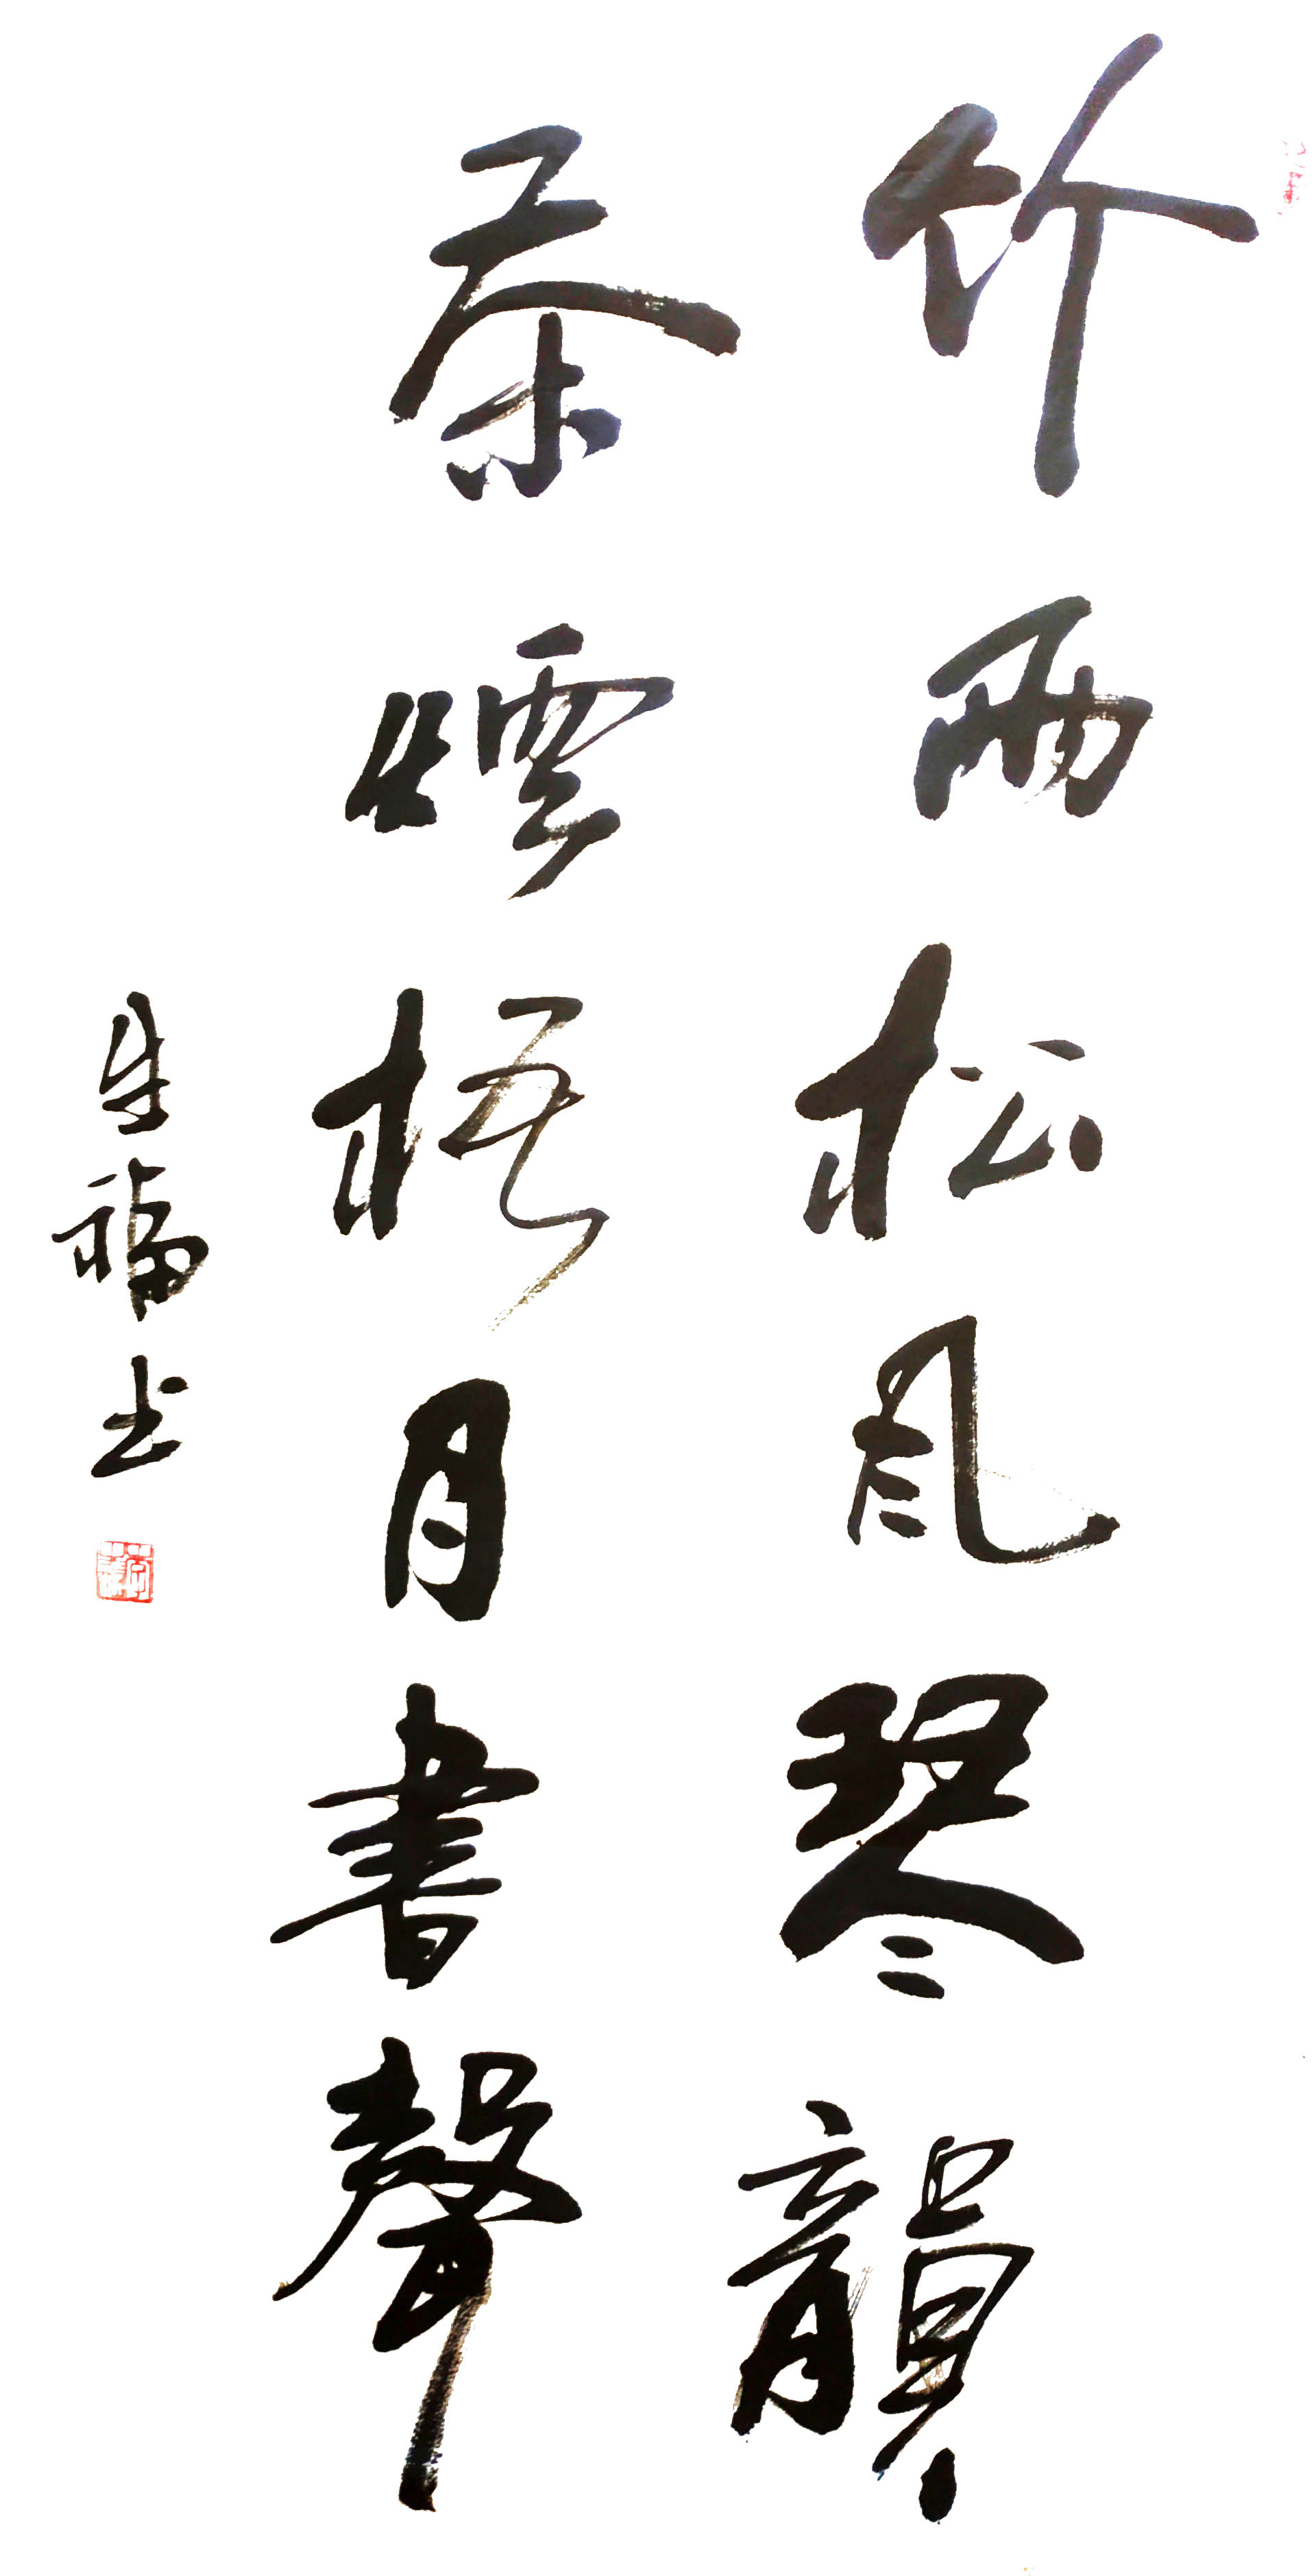 竹雨松风琴韻
茶煙梧月書聲
朱福士